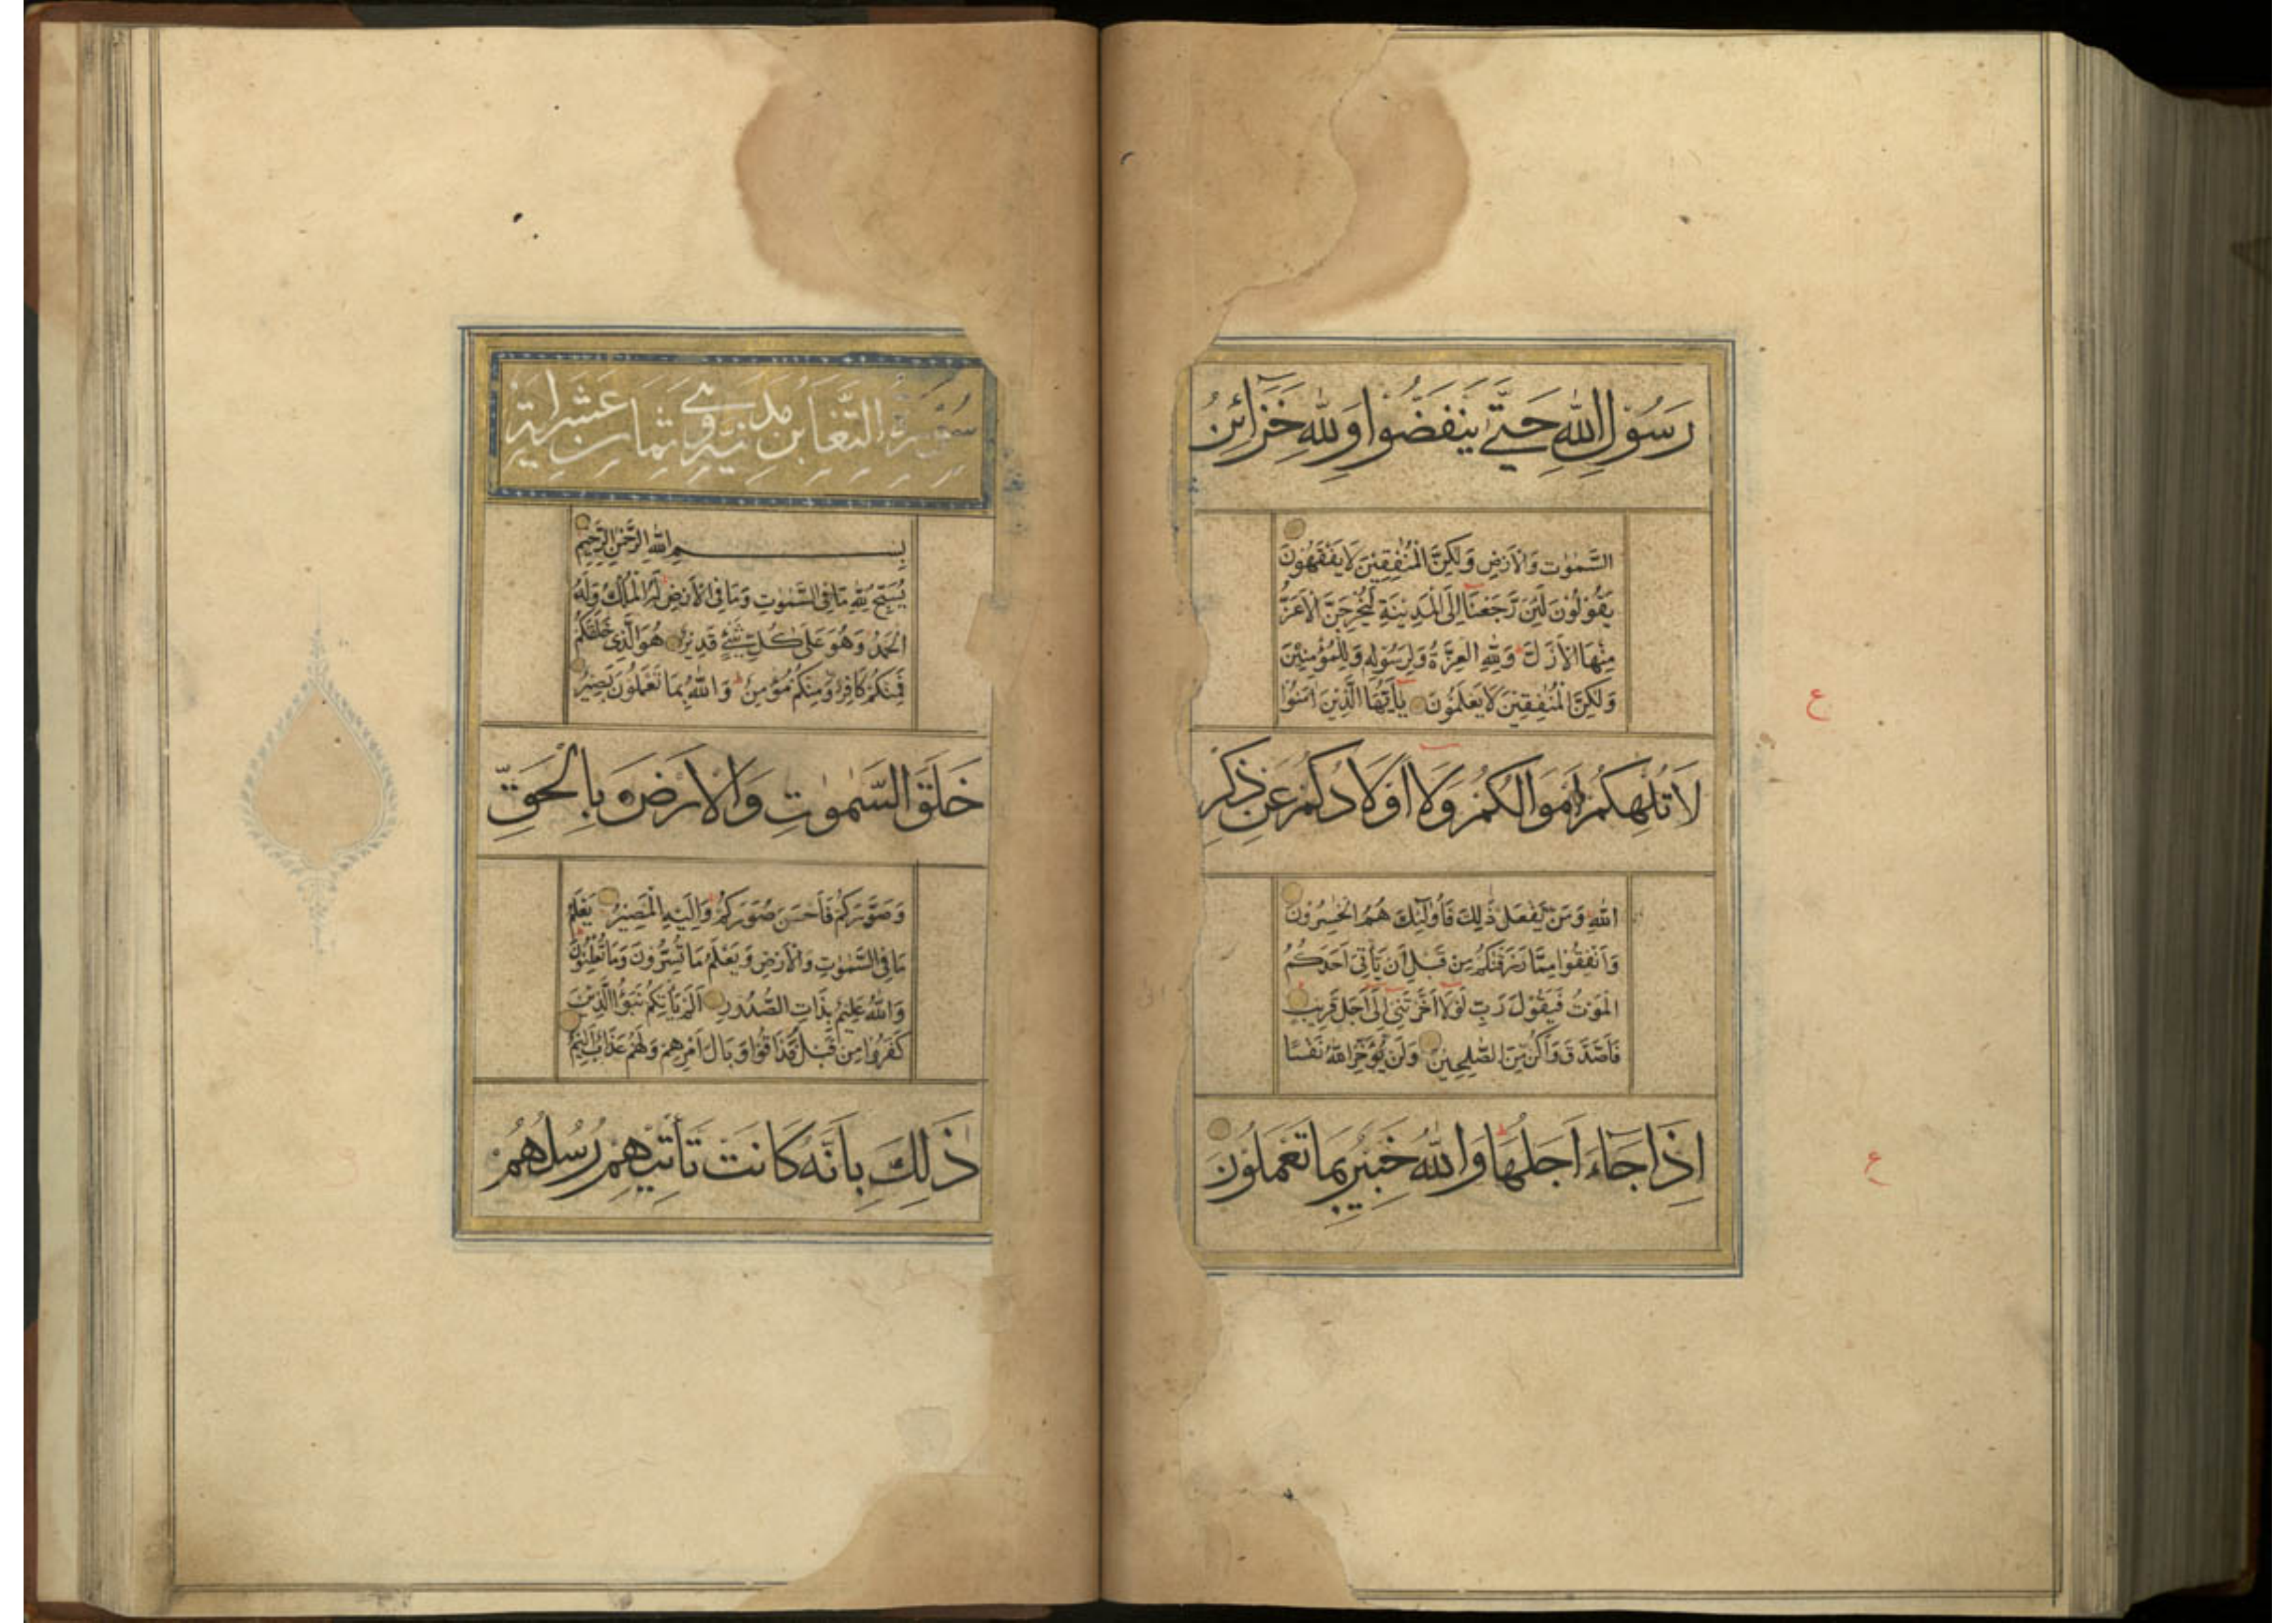 رَسُوْلِ اللّٰهِ حَتّٰى يَنْفَضُّوْا وَلِلّٰهِ خَزَآئِنُ
السَّمٰوٰتِ وَالْاَرْضِ وَلٰكِنَّ الْمُنٰفِقِيْنَ لَا يَفْقَهُوْنَ
يَقُوْلُوْنَ لَئِنْ رَّجَعْنَا اِلَى الْمَدِيْنَةِ لَيُخْرِجَنَّ الْاَعَزُّ
مِنْهَا الْاَذَلَّ وَلِلّٰهِ الْعِزَّةُ وَلِرَسُوْلِهٖ وَلِلْمُؤْمِنِيْنَ
وَلٰكِنَّ الْمُنٰفِقِيْنَ لَا يَعْلَمُوْنَ يٰاَيُّهَا الَّذِيْنَ اٰمَنُوْا
لَا تُلْهِكُمْ اَمْوَالُكُمْ وَلَا اَوْلَادُكُمْ عَنْ ذِكْرِ
اللّٰهِ وَمَنْ يَّفْعَلْ ذٰلِكَ فَاُولٰٓئِكَ هُمُ الْخٰسِرُوْنَ
وَاَنْفِقُوْا مِمَّا رَزَقْنٰكُمْ مِنْ قَبْلِ اَنْ يَّاْتِىَ اَحَدَكُمُ
الْمَوْتُ فَيَقُوْلَ رَبِّ لَوْلَا اَخَّرْتَنِىْ اِلٰٓى اَجَلٍ قَرِيْبٍ
فَاَصَّدَّقَ وَاَكُنْ مِّنَ الصّٰلِحِيْنَ وَلَنْ يُّؤَخِّرَ اللّٰهُ نَفْسًا
اِذَا جَآءَ اَجَلُهَا وَاللّٰهُ خَبِيْرٌ بِمَا تَعْمَلُوْنَ
ع
ع
سُوْرَةُ التَّغَابُنِ مَدَنِيَّةٌ وَهِىَ ثَمَانِ عَشَرَ اٰيَةً
بِسْمِ اللّٰهِ الرَّحْمٰنِ الرَّحِيْمِ
يُسَبِّحُ لِلّٰهِ مَا فِى السَّمٰوٰتِ وَمَا فِى الْاَرْضِ لَهُ الْمُلْكُ وَلَهُ
الْحَمْدُ وَهُوَ عَلٰى كُلِّ شَىْءٍ قَدِيْرٌ هُوَ الَّذِىْ خَلَقَكُمْ
فَمِنْكُمْ كَافِرٌ وَّمِنْكُمْ مُّؤْمِنٌ وَاللّٰهُ بِمَا تَعْمَلُوْنَ بَصِيْرٌ
خَلَقَ السَّمٰوٰتِ وَالْاَرْضَ بِالْحَقِّ
وَصَوَّرَكُمْ فَاَحْسَنَ صُوَرَكُمْ وَاِلَيْهِ الْمَصِيْرُ يَعْلَمُ
مَا فِى السَّمٰوٰتِ وَالْاَرْضِ وَيَعْلَمُ مَا تُسِرُّوْنَ وَمَا تُعْلِنُوْنَ
وَاللّٰهُ عَلِيْمٌ بِذَاتِ الصُّدُوْرِ اَلَمْ يَاْتِكُمْ نَبَؤُا الَّذِيْنَ
كَفَرُوْا مِنْ قَبْلُ فَذَاقُوْا وَبَالَ اَمْرِهِمْ وَلَهُمْ عَذَابٌ اَلِيْمٌ
ذٰلِكَ بِاَنَّهُ كَانَتْ تَاْتِيْهِمْ رُسُلُهُمْ